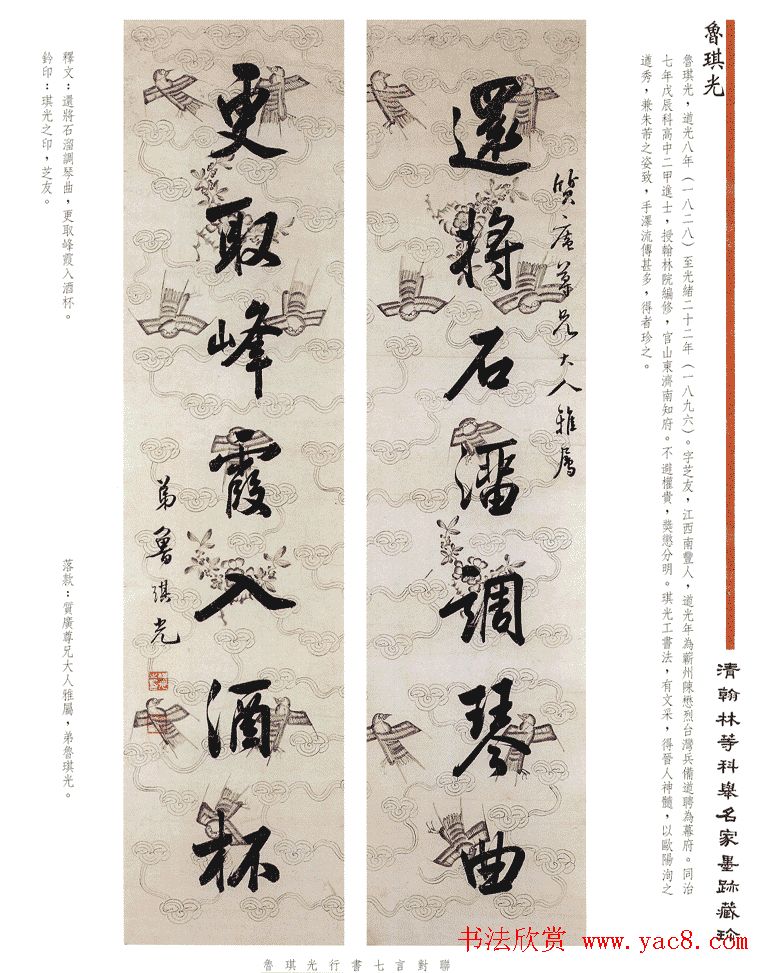 魯琪光
魯琪光，道光八年（一八二八）至光緒二十二年（一八九六）。字芝友，江西南豐人，道光年為蘄州陳懋烈台灣兵備道聘為幕府。同治
七年戊辰科高中二甲進士，授翰林院編修，官山東濟南知府。不避權貴，獎懲分明。琪光工書法，有文采，得晉人神髓，以歐陽洵之
遒秀，兼朱芾之姿致，手澤流傳甚多，得者珍之。
清翰林等科舉名家墨跡藏珍
質廣尊兄大人雅屬
還將石溜調琴曲
更取峰霞入酒杯
弟魯琪光
釋文：還將石溜調琴曲，更取峰霞入酒杯。
鈐印：琪光之印，芝友。
落款：質廣尊兄大人雅屬，弟魯琪光。
魯琪光行書七言對聯
书法欣赏 www.yac8.com